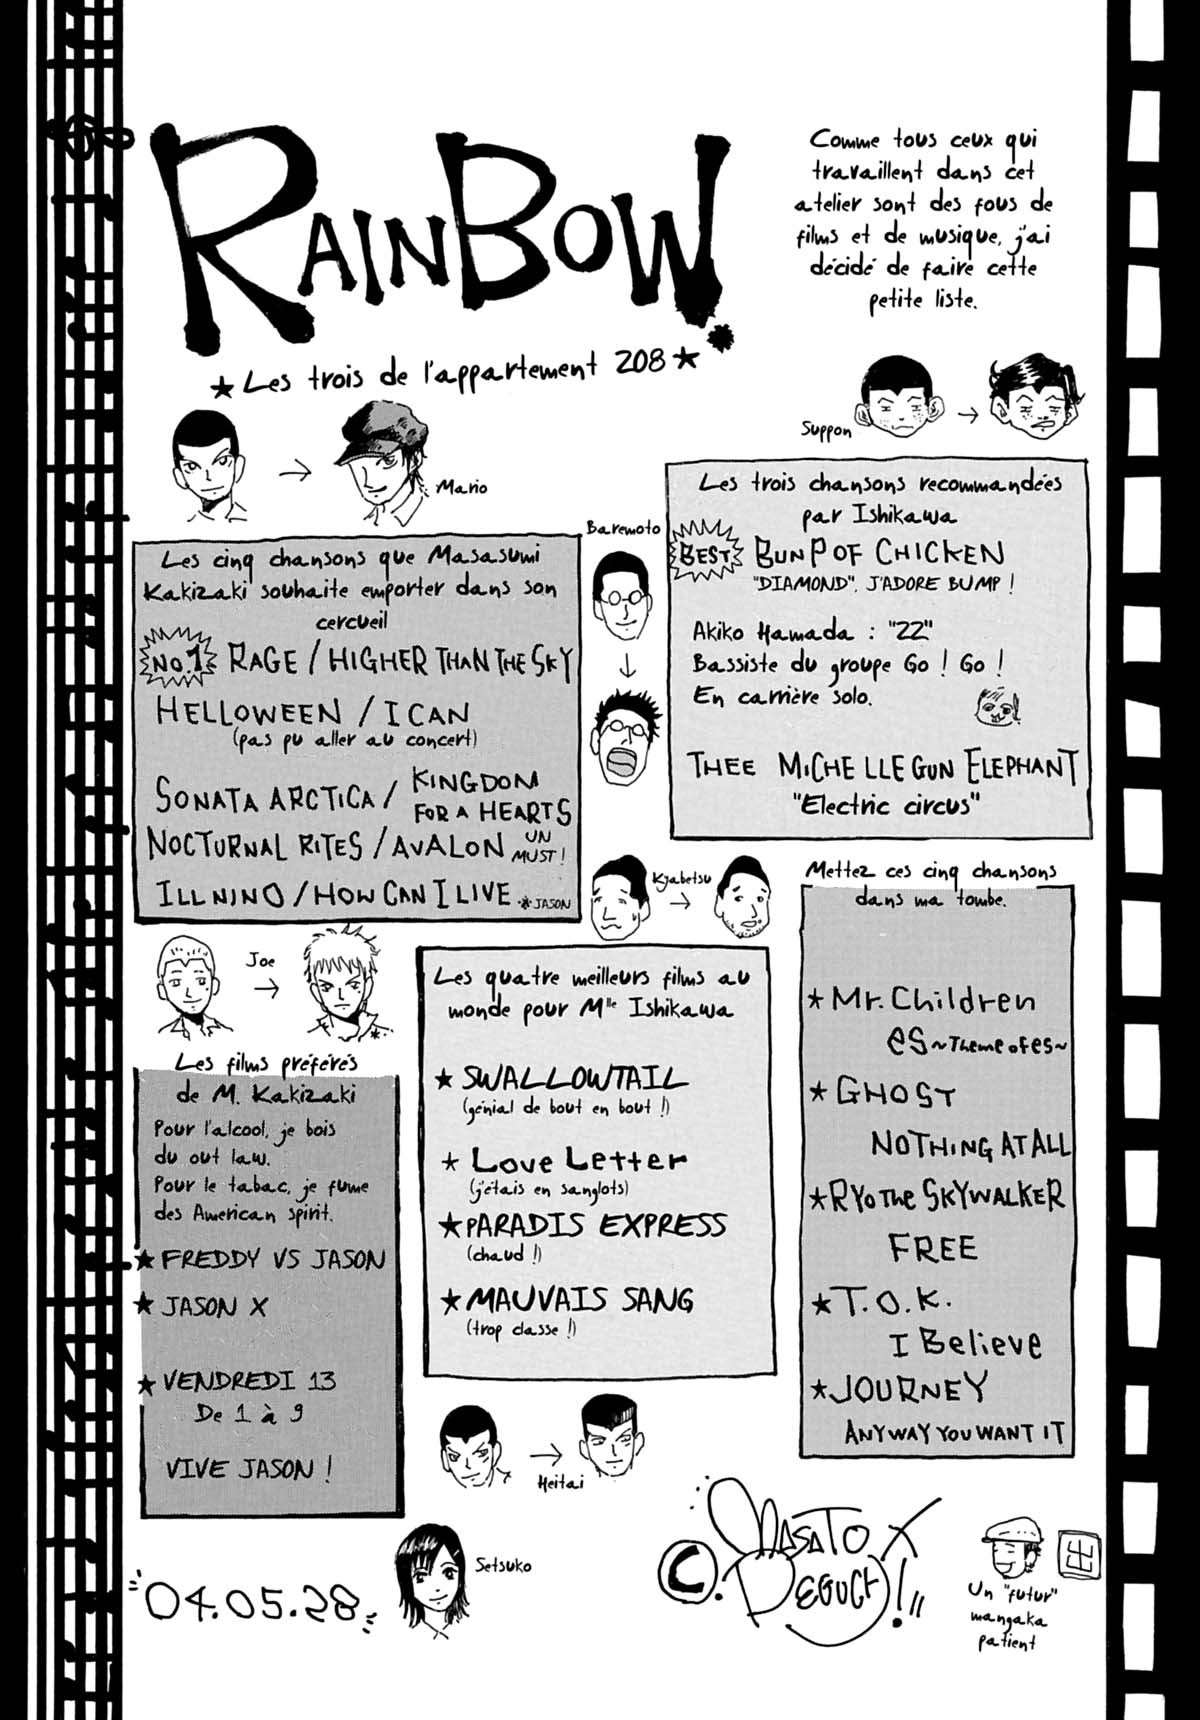 RAINBOW
Comme tous ceux qui
travaillent dans cet
atelier sont des fous de
films et de musique, j'ai
décidé de faire cette
petite liste.
★ Les trois de l'appartement 208 ★
Suppon
Mario
Les cinq chansons que Masasumi
Kakizaki souhaite emporter dans son
cercueil
No.1 RAGE / HIGHER THAN THE SKY
HELLOWEEN / I CAN
(pas pu aller au concert)
SONATA ARCTICA / KINGDOM
FOR A HEARTS
NOCTURNAL RITES / AVALON UN
MUST !
ILL NINO / HOW CAN I LIVE * JASON
Baremoto
Les trois chansons recommandées
par Ishikawa
BEST BUNP OF CHICKEN
"DIAMOND". J'ADORE BUMP !
Akiko Hamada : "22"
Bassiste du groupe Go ! Go !
En carrière solo.
THEE MiCHELLE GUN ELEPHANT
"Electric circus"
Kyabetsu
Joe
Les films préférés
de M. Kakizaki
Pour l'alcool, je bois
du out law.
Pour le tabac, je fume
des American spirit.
★ FREDDY VS JASON
★ JASON X
★ VENDREDI 13
De 1 à 9
VIVE JASON !
Les quatre meilleurs films au
monde pour Mlle Ishikawa
★ SWALLOWTAIL
(génial de bout en bout !)
★ Love Letter
(j'étais en sanglots)
★ PARADIS EXPRESS
(chaud !)
★ MAUVAIS SANG
(trop classe !)
Mettez ces cinq chansons
dans ma tombe.
★ Mr. Children
es ~Theme of es~
★ GHOST
NOTHING AT ALL
★ RYO the SKYWALKER
FREE
★ T.O.K.
I Believe
★ JOURNEY
ANYWAY YOU WANT IT
Heitai
Setsuko
04.05.28
©. MASATO X
DEGUCHI !!
出
Un "futur"
mangaka
patient